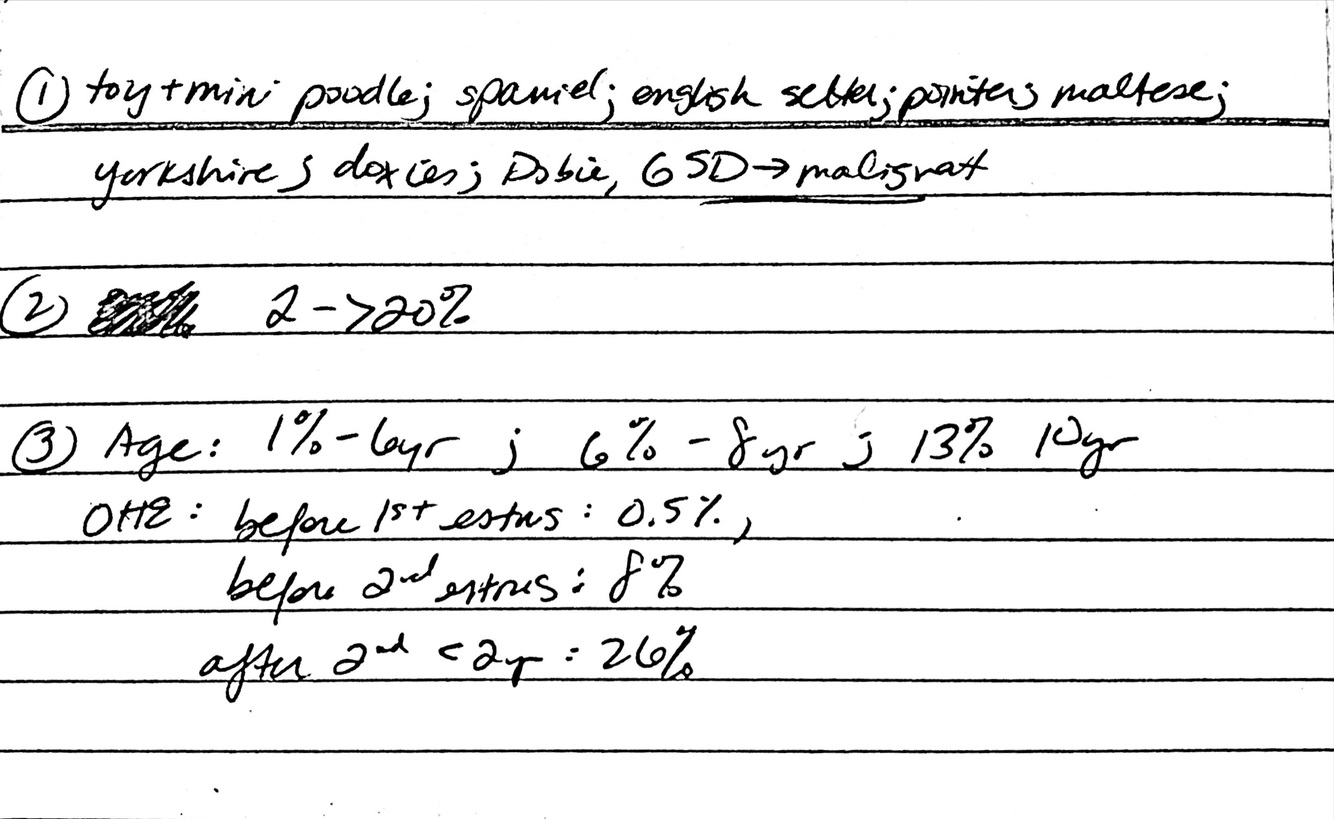 ① toy + mini poodle; spaniel; english setter; pointer; maltese;
yorkshire; doxies; Dobie, GSD → malignat
② 2 - >20%
③ Age: 1% - 6yr ; 6% - 8yr ; 13% 10yr
OHE: before 1st estrus: 0.5%,
before 2nd estrus: 8%
after 2nd <2yr: 26%